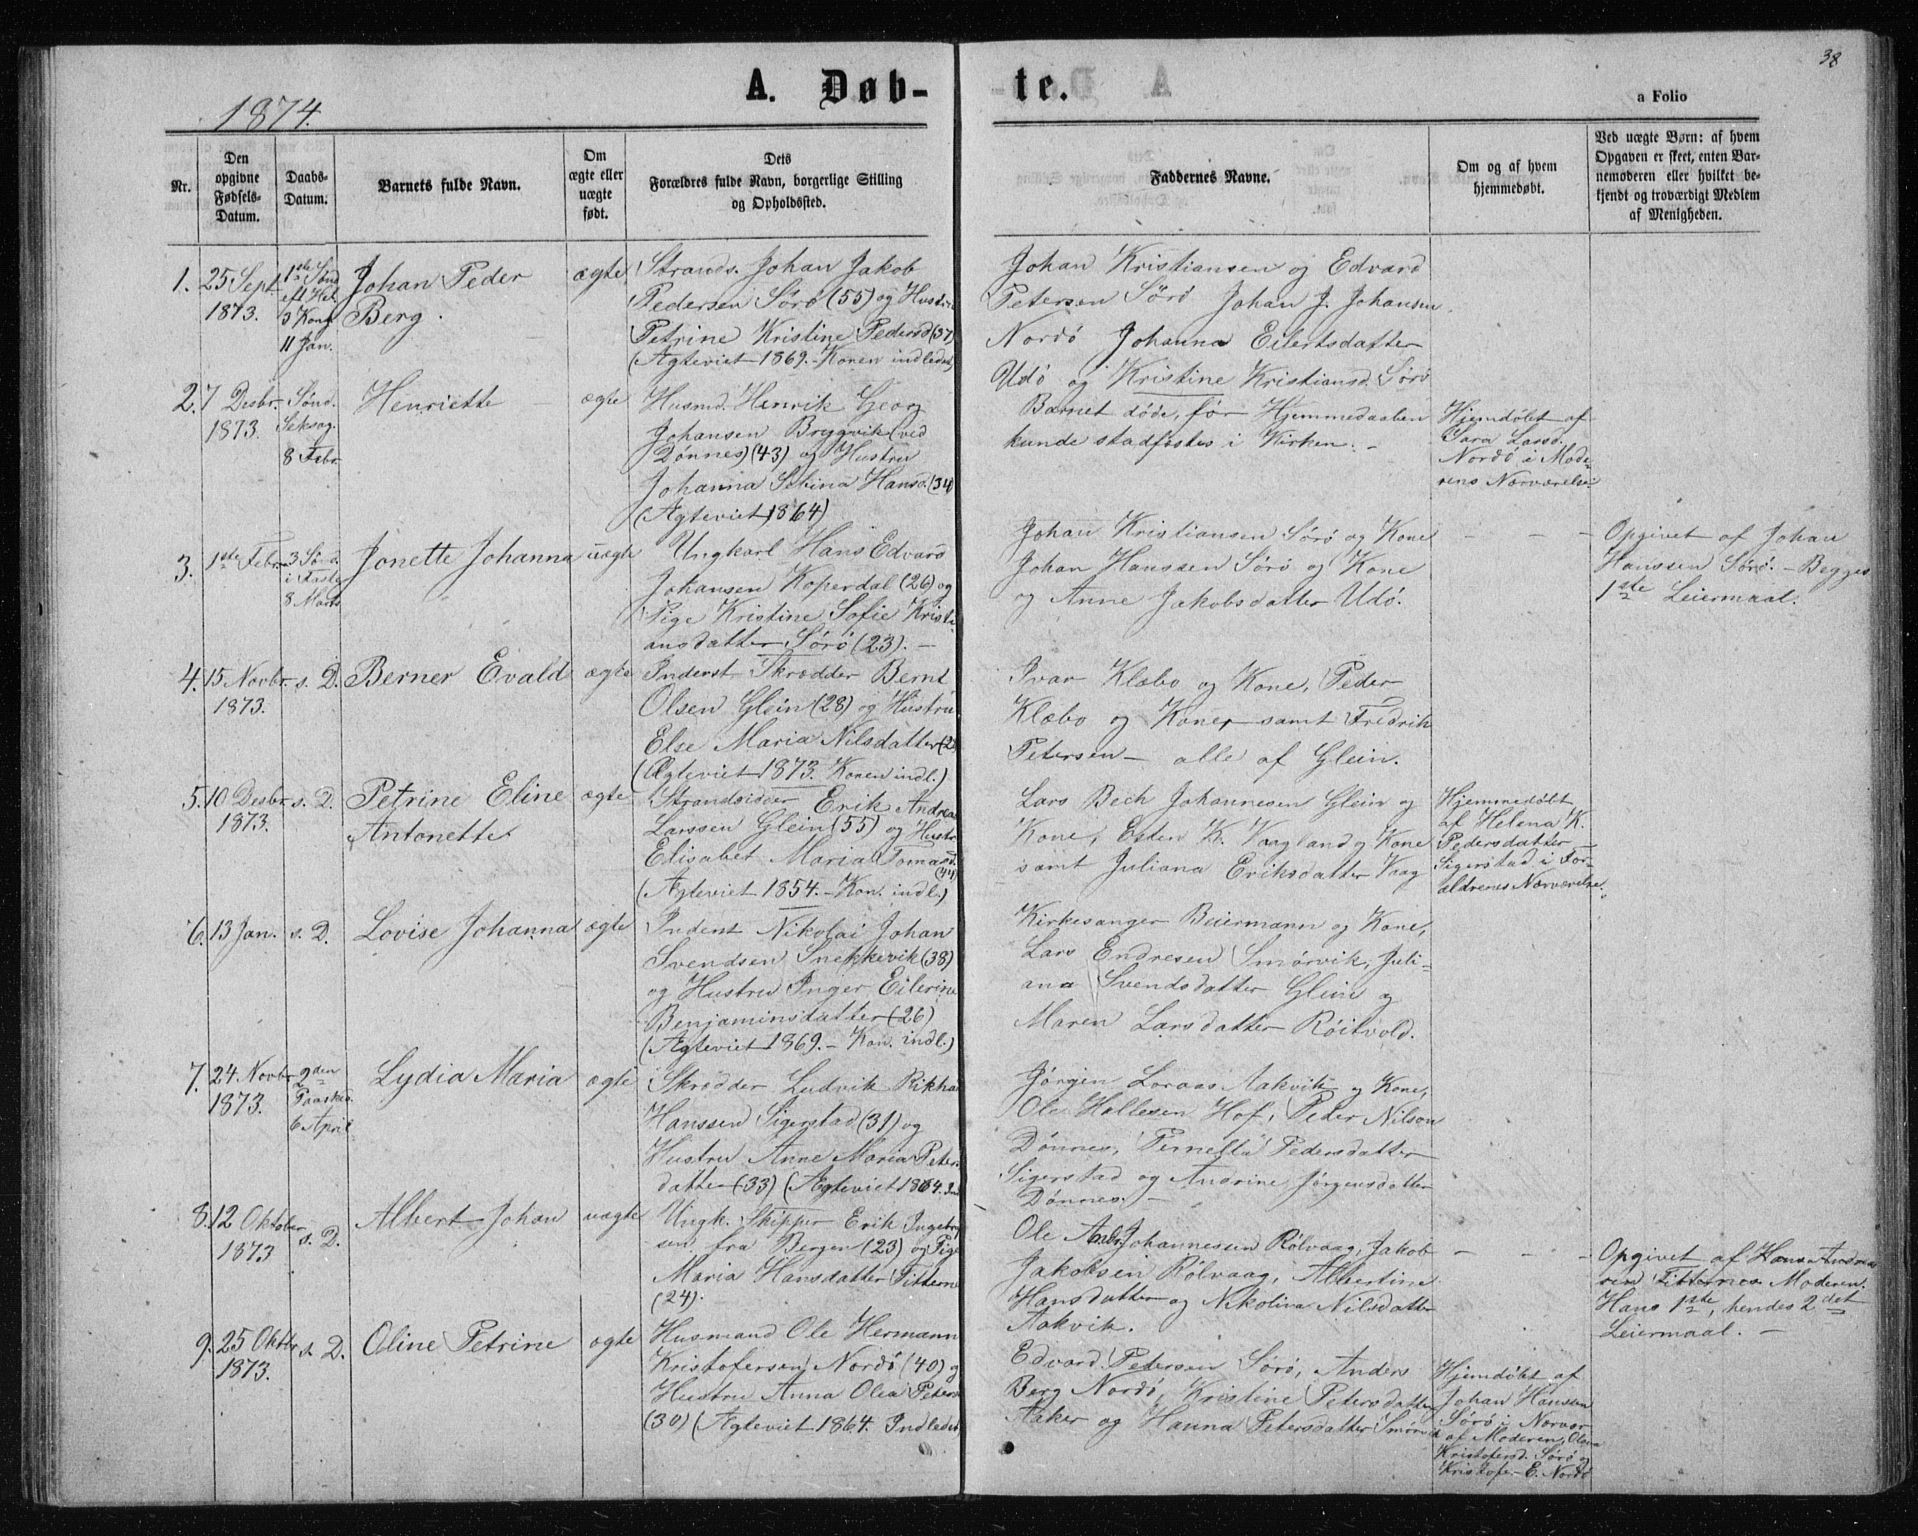 38
A. Døb-
te.
a Folio
1874.
Nr.
Den
opgivne
Fødsels-
Datum.
Daabs-
Datum.
Barnets fulde Navn.
Om
ægte eller
uægte
født.
Dets
Forældres fulde Navn, borgerlige Stilling
og Opholdssted.
Faddernes Navne.
Om og af hvem
hjemmedøbt.
Ved uægte Børn: af hvem
Opgaven er skeet, enten Bar-
nemoderen eller hvilket be-
kjendt og troværdigt Medlem
af Menigheden.
1.
25 Sept
1873.
1ste Sønd
eft Hel
3 Kong
11 Jan.
Johan Peder
Berg.
ægte
Strands. Johan Jakob
Pedersen Sørø (55) og Hustru
Petrine Kristine Pedersd (37)
(Ægteviet 1869. - Konen indledet
Johan Kristiansen og Edvard
Petersen Sörö Johan J. Johansen
Nordö Johanna Eilertsdatter
Udö og Kristine Kristiansd. Sörö
2.
7 Desbr.
1873.
Sønd.
Seksag.
8 Febr.
Henriette
ægte
Husmd. Henrik Georg
Johansen Bryggvik (ved
Dønnes) (43) og Hustru
Johanna Hansd. (34)
(Ægteviet 1864)
Barnet döde, för Hjemmedaaben
kunde stadfæstes i Kirken. -
Hjemdöbt af
Sara Larsd.
Nordö i Mode-
rens Nærværelse
3.
1ste Febr.
3 Sønd.
i Faste
8 Marts
Jonette Johanna
uægte
Ungkarl Hans Edvard
Johansen Koperdal (26) og
Pige Kristine Sofie Kristi-
ansdatter Sörö (23). -
Johan Kristiansen Sörö og Kone
Johan Hanssen Sörö og Kone
og Anne Jakobsdatter Udö.
- - -
Opgivet af Johan
Hanssen Sörö. - Begges
1ste Leiermaal.
4.
15 Novbr.
1873.
s. D.
Berner Evald
ægte
Inderst Skrædder Bernt
Olsen Glein (28) og Hustru
Else Maria Nilsdatter
(Ægteviet 1873. Konen indl.)
Ivar Klæbo og Kone, Peder
Klæbo og Kone, samt Fredrik
Petersen - alle af Glein.
5.
10 Desbr
1873.
s. D.
Petrine Eline
Antonette
ægte
Strandsidder Erik Andreas
Larssen Glein (55) og Hustr
Elisabet Maria Tomasd.
(44)
(Ægteviet 1854. - Kon. indl.)
Lars Bech Johannesen Glein og
Kone, Esten K. Vaagland og Kone
samt Juliana Eriksdatter Vaag
Hjemmedöbt
af Helena K.
Pedersdatter
Sigerstad i For-
ældrenes Nærværelse.
6.
13 Jan.
s. D.
Lovise Johanna
ægte
Inderst Nikolai Johan
Svendsen Snekkevik (38)
og Hustru Inger Eilerine
Benjaminsdatter (26)
(Ægteviet 1869. - Kon. indl.)
Kirkesanger Beiermann og Kone,
Lars Endresen Smörvik, Juli-
ana Svendsdatter Glein og
Maren Larsdatter Röitvold.
7.
24 Novbr
1873.
2den
Paaske
6 April
Lydia Maria
ægte
Skrædder Ludvik Rikha
Hanssen Sigerstad (31) og
Hustru Anne Maria Peter
datter (33) (Ægteviet 1864. Ind
Jörgen Loraas Aakvik og Kone,
Ole Hallesen Hof, Peter Nilson
Dönnes, Pernella Pedersdatter
Sigerstad og Andrine Jörgensdatter
Dönnes. -
8.
12 Oktober
1873
s. D.
Albert Johan
uægte
Ungk. Skipper Erik Ingebrig
sen fra Bergen (23) og Pige
Maria Hansdatter Titterne
(24).
Ole Andr. Johannesen Rölvaag, Jakob
Jakobsen Rölvaag, Albertine
Hansdatter og Nikolina Nilsdatter
Aakvik.
- - -
Opgivet af Hans Andrea
sen Titternes Moderen.
Hans 1ste, hendes 2det
Leiermaal. -
9.
25 Oktbr
1873.
s. D.
Oline Petrine
ægte
Husmand Ole Hermann
Kristofersen Nordö (40) og
Hustru Anna Olea Peters
(30) (Ægteviet 1864. Indledet
Edvard Petersen Sörö, Anders
Berg Nordö, Kristine Petersdatter
Aaker og Hanna Petersdatter Smörvik
Hjemdöbt af
Johan Hansen
Sörö i Nærvær
af Moderen, Olava
Kristofersd. Sörö og
Kristofer E. Nordö